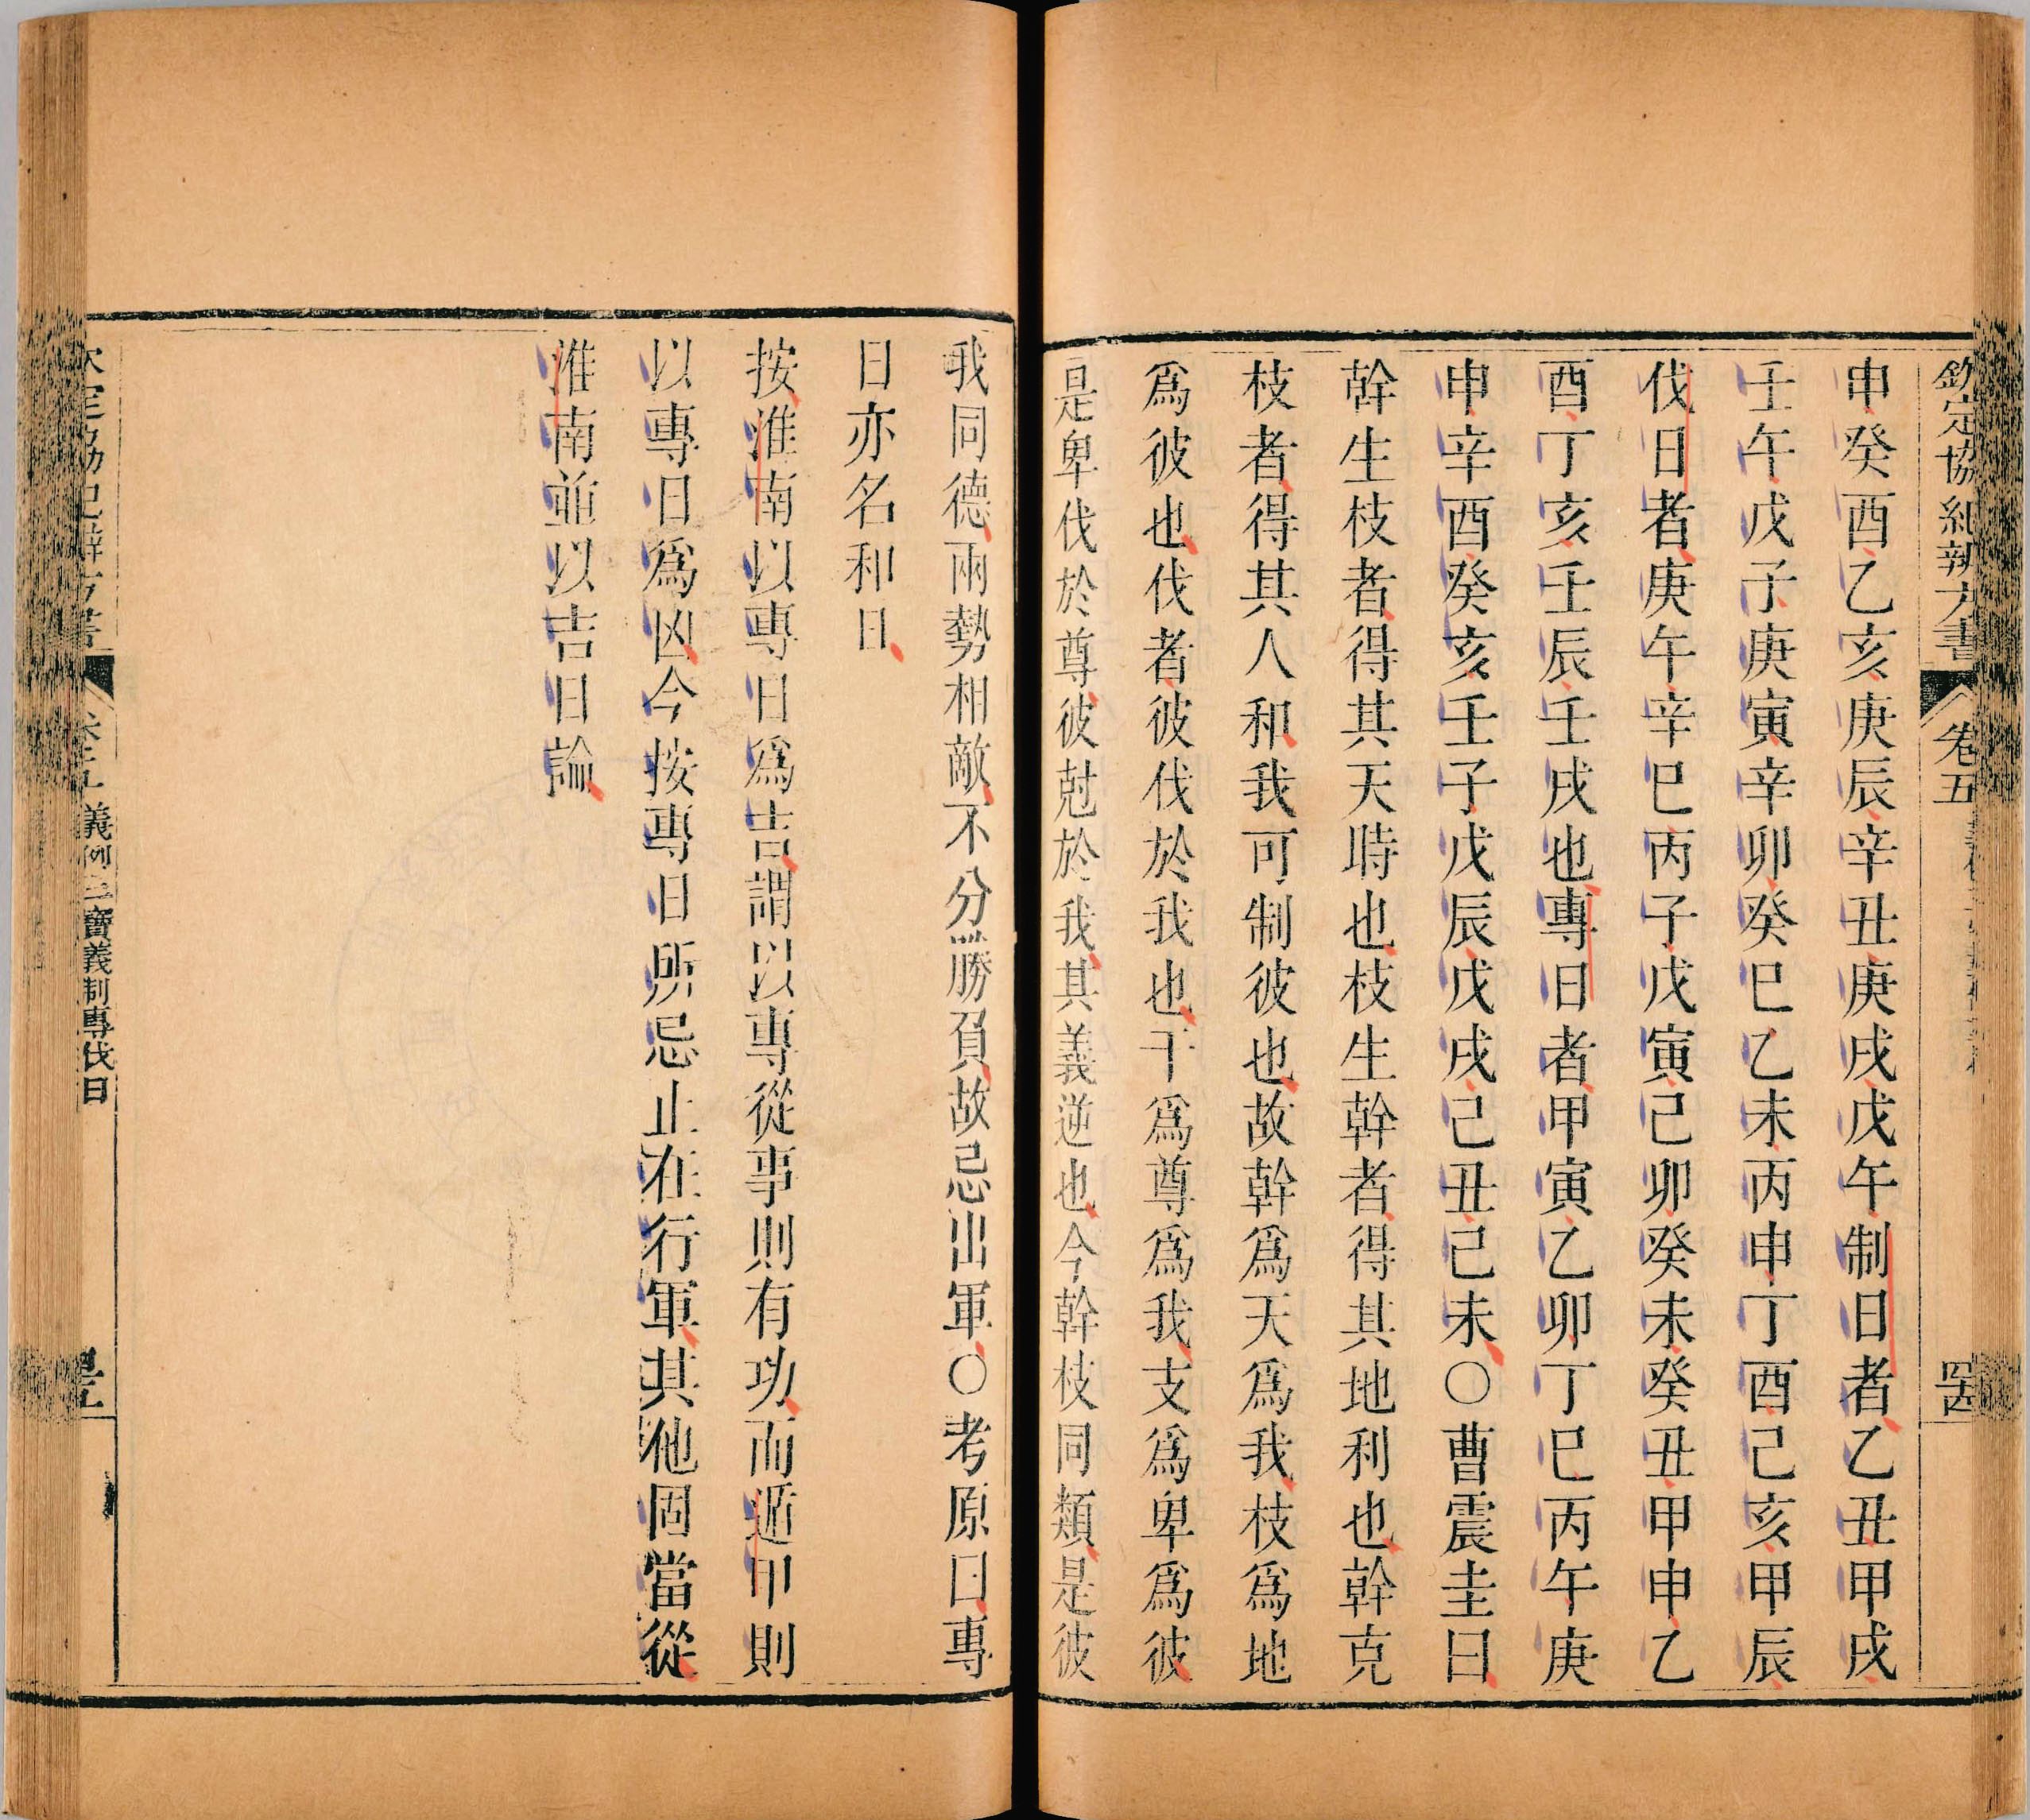 欽定協紀辨方書 卷五 四十四
申癸酉乙亥庚辰辛丑庚戌戊午制日者乙丑甲戌
壬午戊子庚寅辛卯癸巳乙未丙申丁酉己亥甲辰
伐日者庚午辛巳丙子戊寅己卯癸未癸丑甲申乙
酉丁亥壬辰壬戌也專日者甲寅乙卯丁巳丙午庚
申辛酉癸亥壬子戊辰戊戌己丑己未○曹震圭曰
幹生枝者得其天時也枝生幹者得其地利也幹克
枝者得其人和我可制彼也故幹爲天爲我枝爲地
爲彼也伐者彼伐於我也干爲尊爲我支爲卑爲彼
是卑伐於尊彼尅於我其義逆也今幹枝同類是彼
我同德兩勢相敵不分勝負故忌出軍○考原曰專
日亦名和日
按淮南以專日爲吉謂以專從事則有功而遁甲則
以專日爲凶今按專日所忌止在行軍其他固當從
淮南並以吉日論
欽定協紀辨方書 卷五 義例三寶義制專伐日